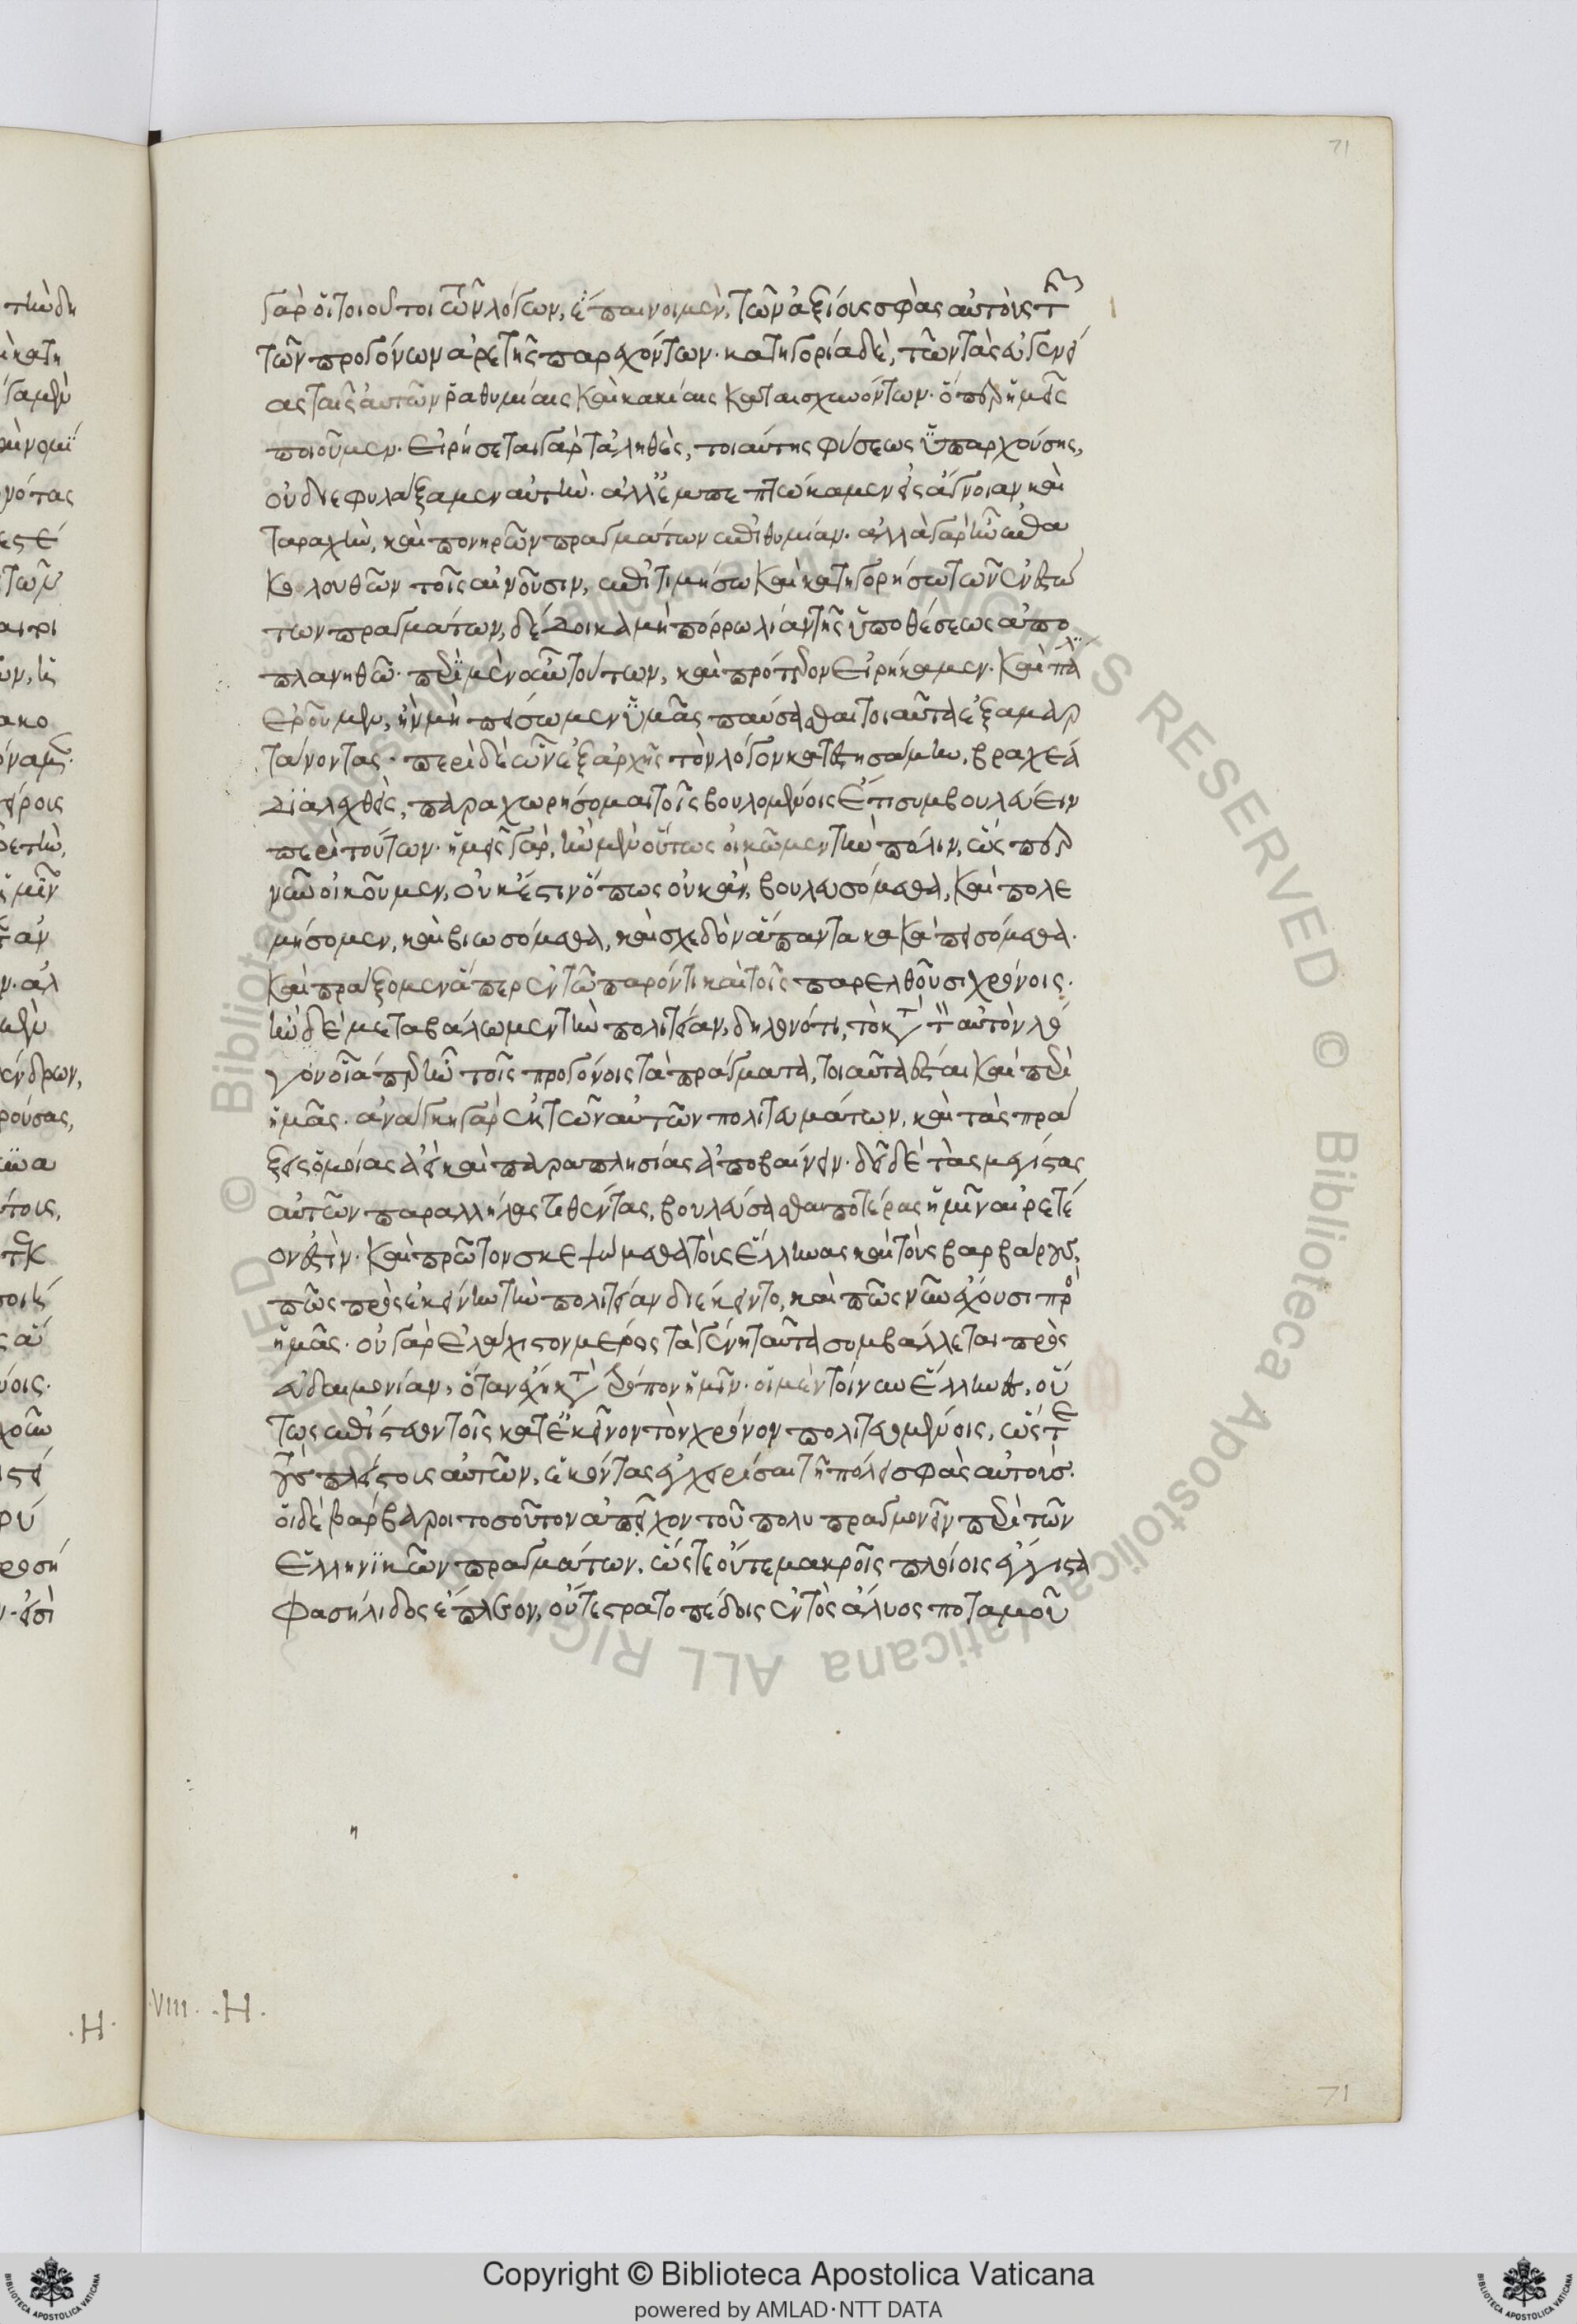 γὰρ οἱ τοιοῦτοι τῶν λόγων, ἔπαινοι μὲν, τῶν ἀξίους σφᾶς αὐτοὺς τῆς
τῶν προγόνων ἀρετῆς παρεχόντων· κατηγορία δὲ, τῶν τὰς εὐγενεί
ας ταῖς αὑτῶν ῥαθυμίαις καὶ κακίαις καταισχυνόντων· ὅπερ ἡμεῖς
ποιοῦμεν· εἰρήσεται γὰρ τἀληθὲς, τοιαύτης φύσεως ὑπαρχούσης,
οὐ διεφυλάξαμεν αὐτὴν· ἀλλ' ἐμπεπτώκαμεν εἰς ἄγνοιαν καὶ
ταραχὴν, καὶ πονηρῶν πραγμάτων ἐπιθυμίαν· ἀλλὰ γὰρ ἢν ἐπα
κολουθῶν τοῖς ἐνοῦσιν, ἐπιτιμήσω καὶ κατηγορήσω τῶν ἐνεστώ
των πραγμάτων, δέδοικα μὴ πόρρω λίαν τῆς ὑποθέσεως ἀπο
πλανηθῶ· περὶ μὲν οὖν τούτων, καὶ πρότερον εἰρήκαμεν· καὶ πάλιν
ἐροῦμεν, ἢν μὴ πείσωμεν ὑμᾶς παύσασθαι τοιαῦτα ἐξαμαρ
τάνοντας· περὶ δὲ ὧν ἐξ ἀρχῆς τὸν λόγον κατεστησάμην, βραχέα
διαλεχθεὶς, παραχωρήσομαι τοῖς βουλομένοις ἔτι συμβουλεύειν
περὶ τούτων· ἡμεῖς γὰρ, ἢν μὲν οὕτως οἰκῶμεν τὴν πόλιν, ὥσπερ
νῦν οἰκοῦμεν, οὐκ ἔστιν ὅπως οὐ καὶ, βουλευσόμεθα, καὶ πολε
μήσομεν, καὶ βιωσόμεθα, καὶ σχεδὸν ἅπαντα κακὰ πεισόμεθα·
καὶ πράξομεν ἅπερ ἐν τῷ παρόντι καὶ τοῖς παρελθοῦσι χρόνοις·
ἢν δὲ μεταβάλωμεν τὴν πολιτείαν, δηλονότι, κατὰ τὸν αὐτὸν λό
γον οἷάπερ ἦν τοῖς προγόνοις τὰ πράγματα, τοιαῦτα ἔσται καὶ περὶ
ἡμᾶς· ἀνάγκη γὰρ ἐκ τῶν αὐτῶν πολιτευμάτων, καὶ τὰς πρά
ξεις ὁμοίας ἀεὶ καὶ παραπλησίας ἀποβαίνειν· δεῖ δὲ τὰς μεγίστας
αὐτῶν παραλλήλας τιθέντας, βουλεύσασθαι ποτέρας ἡμῖν αἱρετέ
ον ἐστὶν· καὶ πρῶτον σκεψώμεθα τοὺς ἕλληνας καὶ τοὺς βαρβάρους,
πῶς πρὸς ἐκείνην τὴν πολιτείαν διέκειντο, καὶ πῶς νῦν ἔχουσι πρὸς
ἡμᾶς· οὐ γὰρ ἐλάχιστον μέρος τὰ γένη ταῦτα συμβάλλεται πρὸς
εὐδαιμονίαν, ὅταν ἔχῃ κατὰ τρόπον ἡμῖν· οἱ μὲν τοίνυν ἕλληνες, οὕ
τως ἐπίστευον τοῖς κατ' ἐκεῖνον τὸν χρόνον πολιτευομένοις, ὥστε
τοὺς πλείστους αὐτῶν, ἑκόντας ἐγχειρίσαι τῇ πόλει σφᾶς αὐτούς·
οἱ δὲ βάρβαροι τοσοῦτον ἀπεῖχον τοῦ πολυπραγμονεῖν περὶ τῶν
ἑλληνικῶν πραγμάτων, ὥστε οὔτε μακροῖς πλοίοις ἐπὶ τάδε
φασήλιδος ἔπλεον, οὔτε στρατοπέδοις ἐντὸς ἅλυος ποταμοῦ
·H· VIII· ·H·
71
71
Copyright © Biblioteca Apostolica Vaticana
powered by AMLAD·NTT DATA